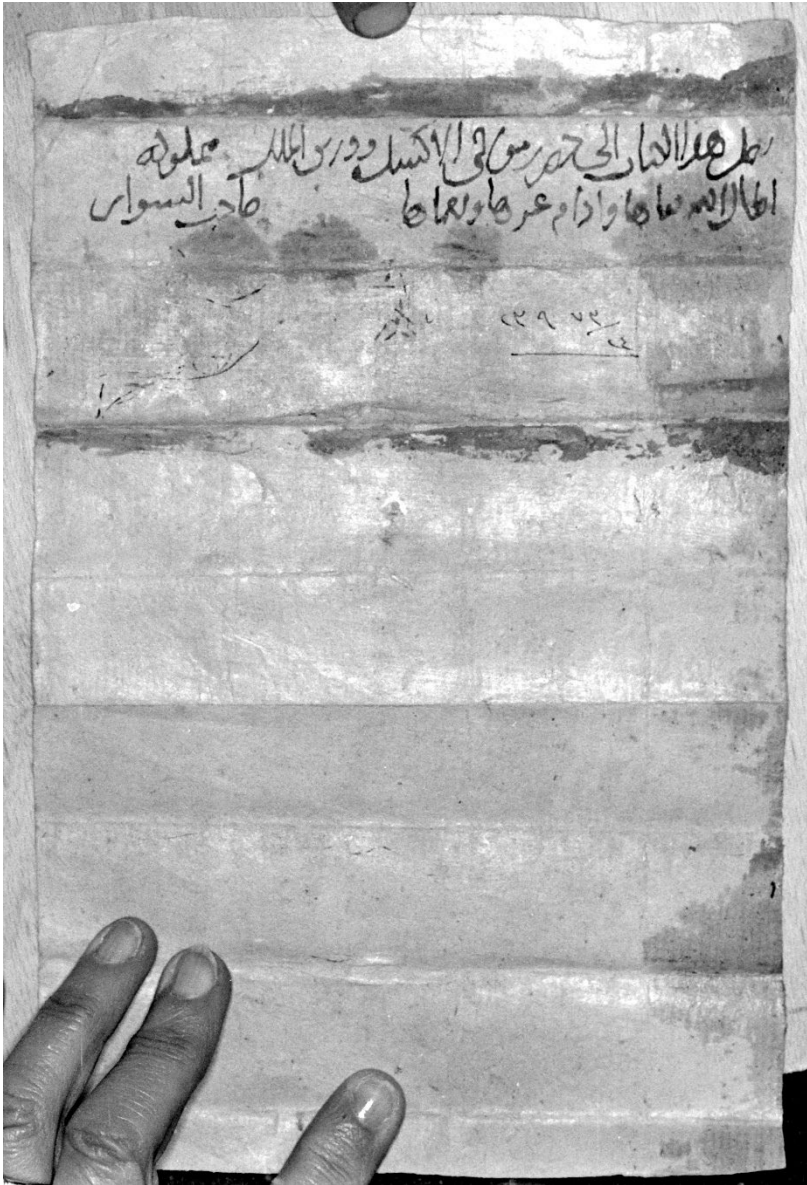 يصل هذا الكتاب الى حضرة مولاي الاكشيل ووزير الملك مملوكه
اطال الله بقاها وادام عزها ونعماها صاحب السواري